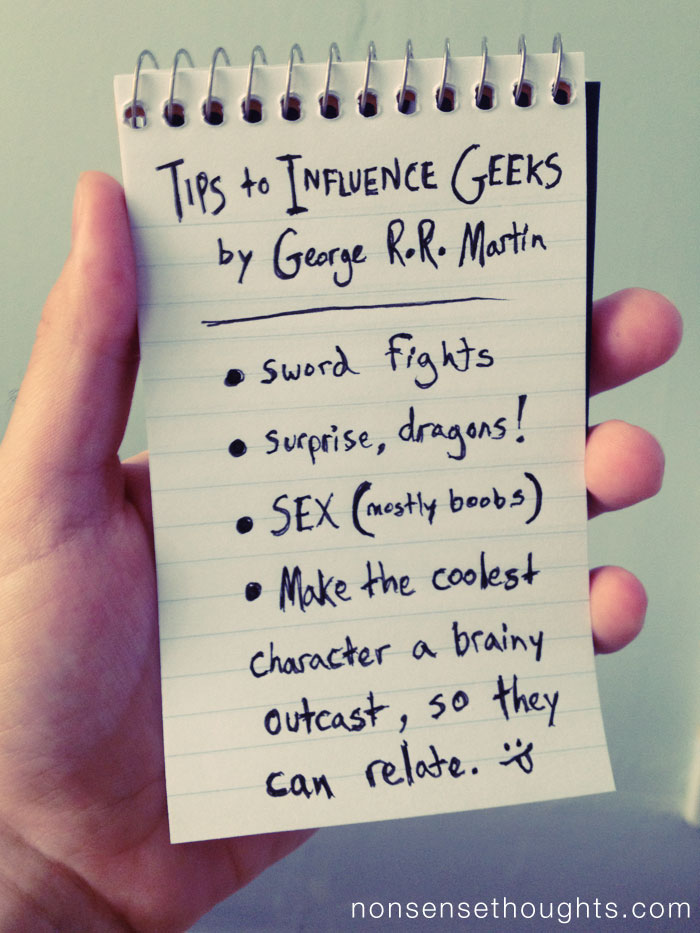 TIPS to INFLUENCE GEEKS
by George R.R. Martin
• sword fights
• surprise, dragons!
• SEX (mostly boobs)
• Make the coolest
character a brainy
outcast, so they
can relate.
nonsensethoughts.com